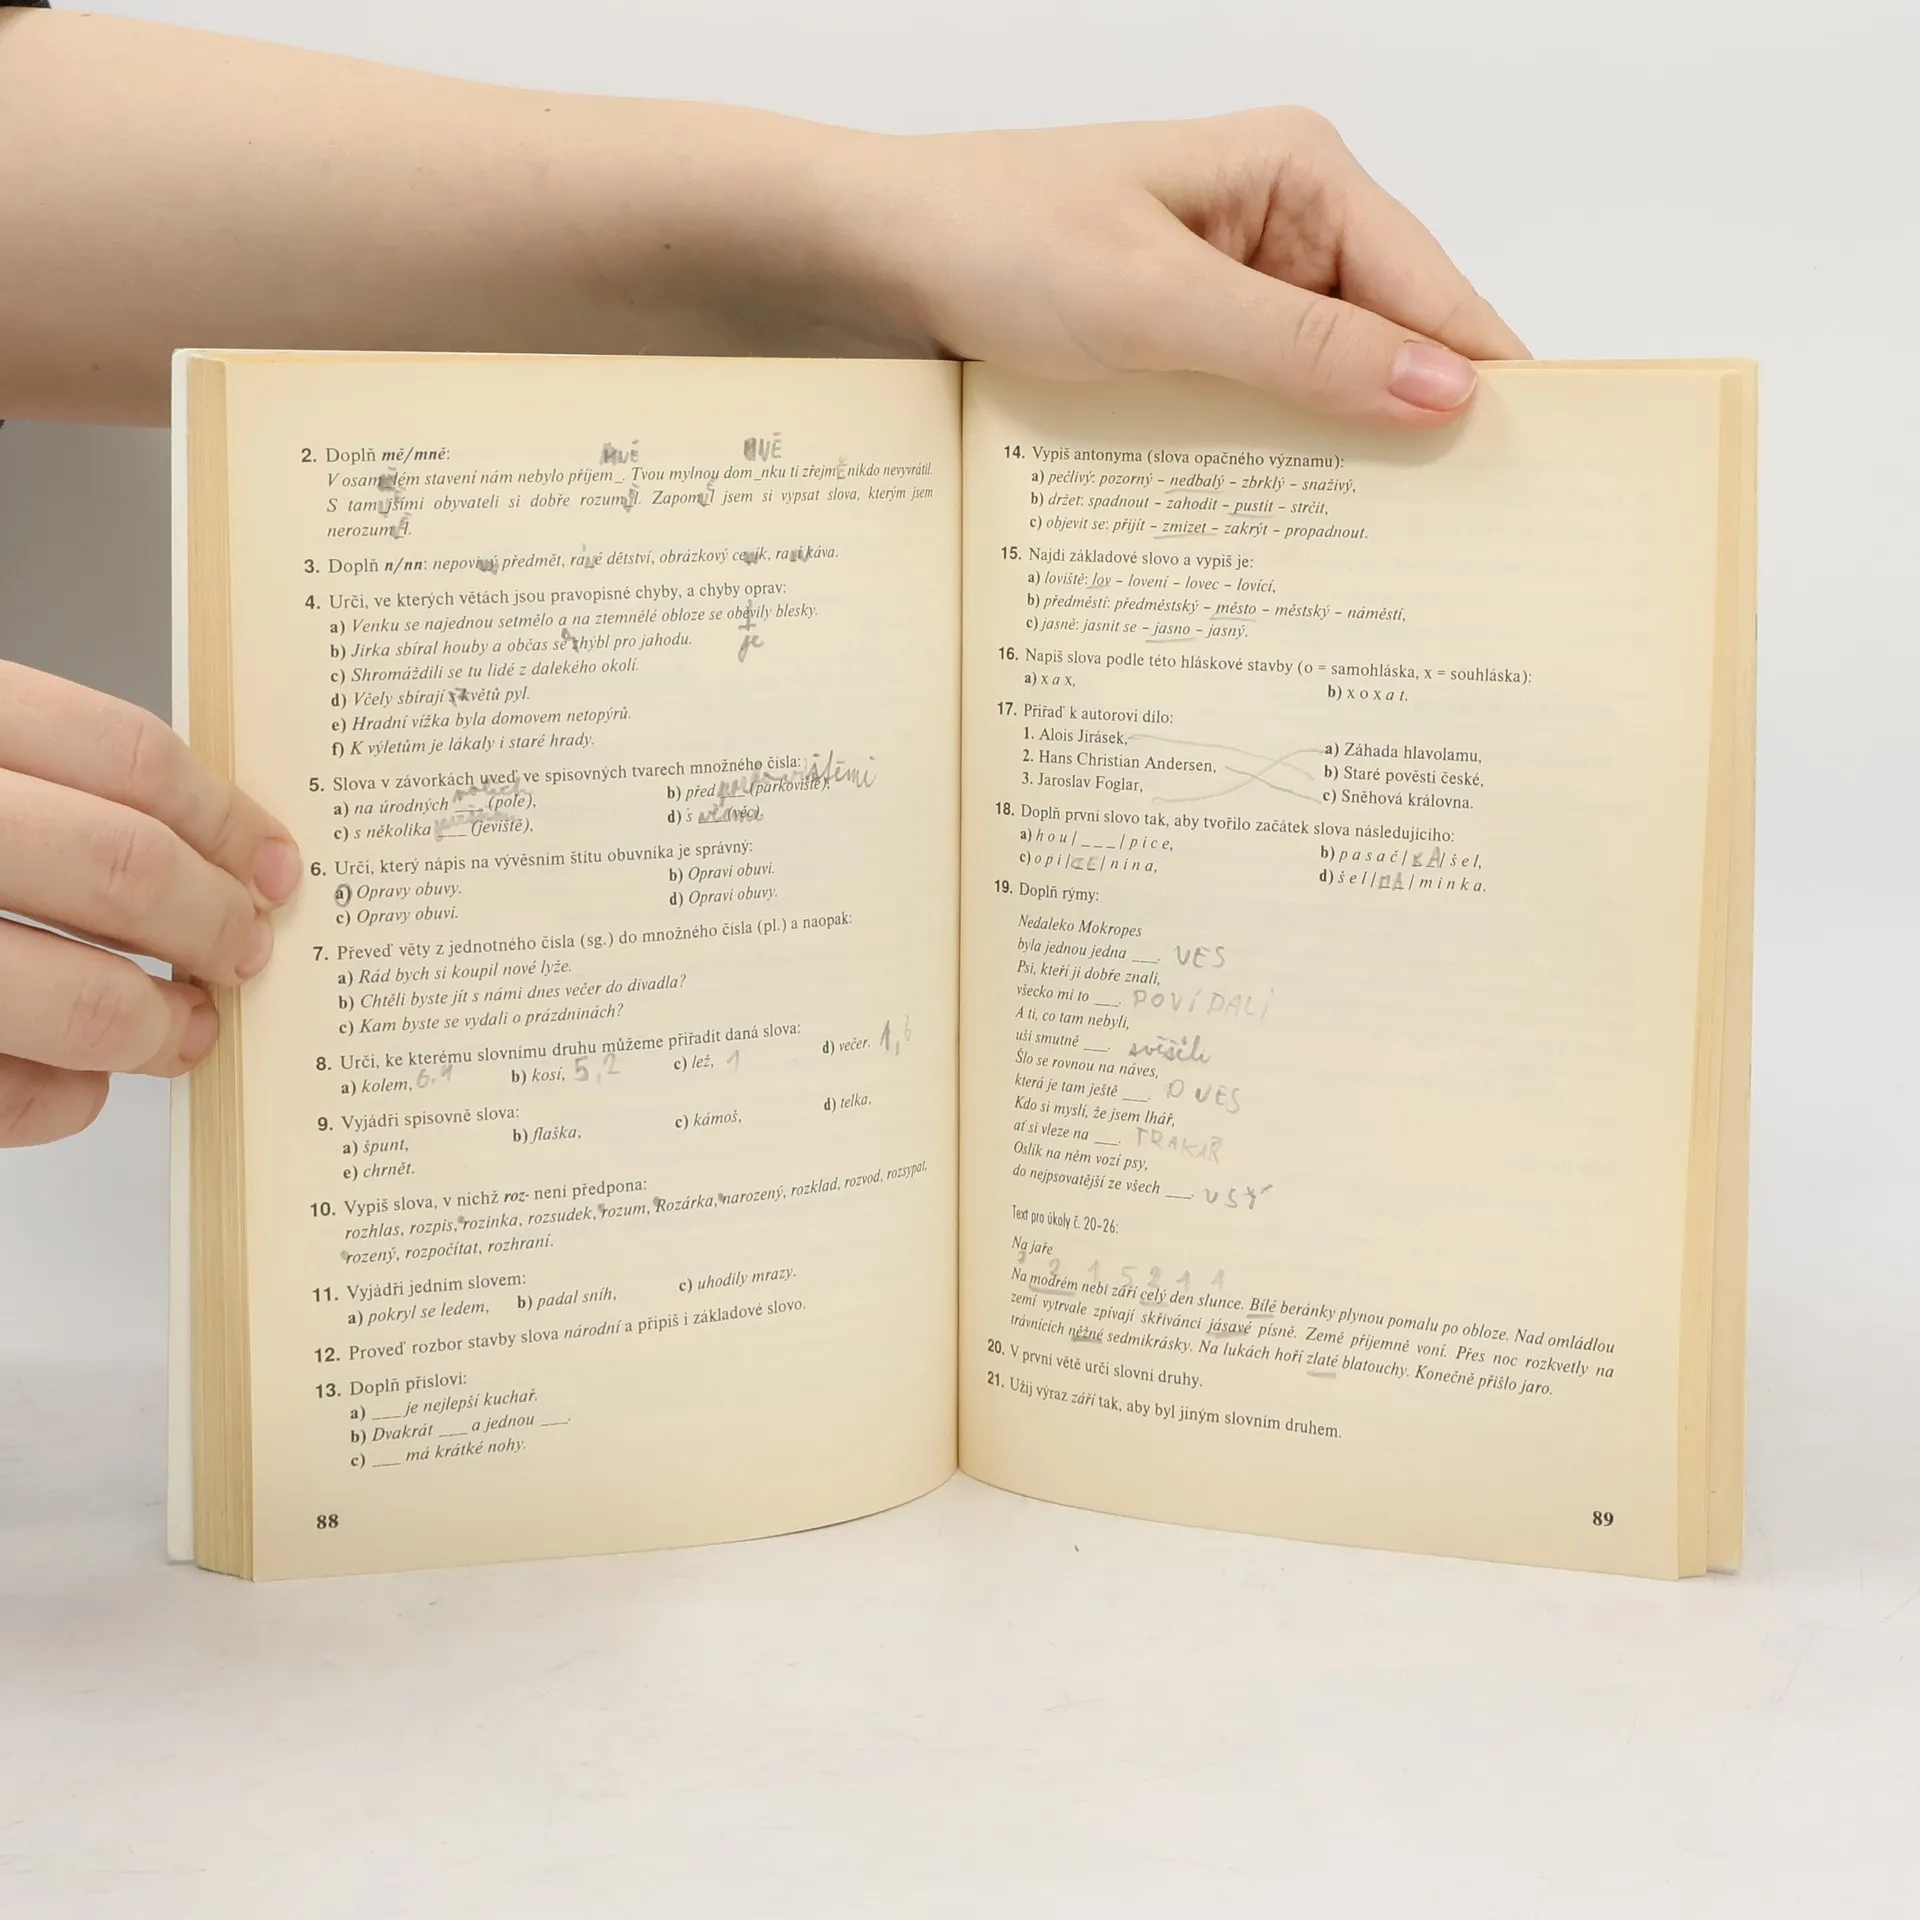 2. Doplň mě/mně:
MNĚ MNĚ
V osam_lém stavení nám nebylo příjem_. Tvou mylnou dom_nku ti zřejmě nikdo nevyvrátil.
S tam_jšími obyvateli si dobře rozum_l. Zapom_l jsem si vypsat slova, kterým jsem
nerozum_l.
3. Doplň n/nn: nepovi_ý předmět, ra_é dětství, obrázkový ce_ík, ra_í káva.
4. Urči, ve kterých větách jsou pravopisné chyby, a chyby oprav:
a) Venku se najednou setmělo a na ztemnělé obloze se obevily blesky.
je
b) Jirka sbíral houby a občas se zhýbl pro jahodu.
c) Shromáždili se tu lidé z dalekého okolí.
d) Včely sbírají s květů pyl.
e) Hradní vížka byla domovem netopýrů.
f) K výletům je lákaly i staré hrady.
5. Slova v závorkách uveď ve spisovných tvarech množného čísla:
a) na úrodných ___ (pole), b) před ___ (parkoviště),
c) s několika ___ (jeviště), d) s ___ (věc).
6. Urči, který nápis na vývěsním štítu obuvníka je správný:
a) Opravy obuvy. b) Opravi obuvi.
c) Opravy obuvi. d) Opravi obuvy.
7. Převeď věty z jednotného čísla (sg.) do množného čísla (pl.) a naopak:
a) Rád bych si koupil nové lyže.
b) Chtěli byste jít s námi dnes večer do divadla?
c) Kam byste se vydali o prázdninách?
8. Urči, ke kterému slovnímu druhu můžeme přiřadit daná slova:
a) kolem, b) kosí, 5,2 c) lež, 1 d) večer. 1,6
9. Vyjádři spisovně slova:
a) špunt, b) flaška, c) kámoš, d) telka,
e) chrnět.
10. Vypiš slova, v nichž roz- není předpona:
rozhlas, rozpis, rozinka, rozsudek, rozum, Rozárka, narozený, rozklad, rozvod, rozsypat,
rozený, rozpočítat, rozhraní.
11. Vyjádři jedním slovem:
a) pokryl se ledem, b) padal sníh, c) uhodily mrazy.
12. Proveď rozbor stavby slova národní a připiš i základové slovo.
13. Doplň přísloví:
a) ___ je nejlepší kuchař.
b) Dvakrát ___ a jednou ___.
c) ___ má krátké nohy.
88
14. Vypiš antonyma (slova opačného významu):
a) pečlivý: pozorný – nedbalý – zbrklý – snaživý,
b) držet: spadnout – zahodit – pustit – strčit,
c) objevit se: přijít – zmizet – zakrýt – propadnout.
15. Najdi základové slovo a vypiš je:
a) loviště: lov – lovení – lovec – lovící,
b) předměstí: předměstský – město – městský – náměstí,
c) jasně: jasnit se – jasno – jasný.
16. Napiš slova podle této hláskové stavby (o = samohláska, x = souhláska):
a) x a x, b) x o x a t.
17. Přiřaď k autorovi dílo:
1. Alois Jirásek, a) Záhada hlavolamu,
2. Hans Christian Andersen, b) Staré pověsti české,
3. Jaroslav Foglar, c) Sněhová královna.
18. Doplň první slovo tak, aby tvořilo začátek slova následujícího:
a) h o u / _ _ _ / p i c e, b) p a s a č / KA / š e l,
c) o p i / CE / n i n a, d) š e l / MA / m i n k a.
19. Doplň rýmy:
Nedaleko Mokropes
byla jednou jedna ___. VES
Psi, kteří ji dobře znali,
všecko mi to ___. POVÍDALI
A ti, co tam nebyli,
uši smutně ___. svěsili
Šlo se rovnou na náves,
která je tam ještě ___. DNES
Kdo si myslí, že jsem lhář,
ať si vleze na ___. TRAKAŘ
Oslík na něm vozí psy,
do nejpsovatější ze všech ___. VSÍ
Text pro úkoly č. 20–26:
Na jaře
7 2 1 5 2 1 1
Na modrém nebi září celý den slunce. Bílé beránky plynou pomalu po obloze. Nad omládlou
zemí vytrvale zpívají skřivánci jásavé písně. Země příjemně voní. Přes noc rozkvetly na
trávnících něžné sedmikrásky. Na lukách hoří zlaté blatouchy. Konečně přišlo jaro.
20. V první větě urči slovní druhy.
21. Užij výraz září tak, aby byl jiným slovním druhem.
89